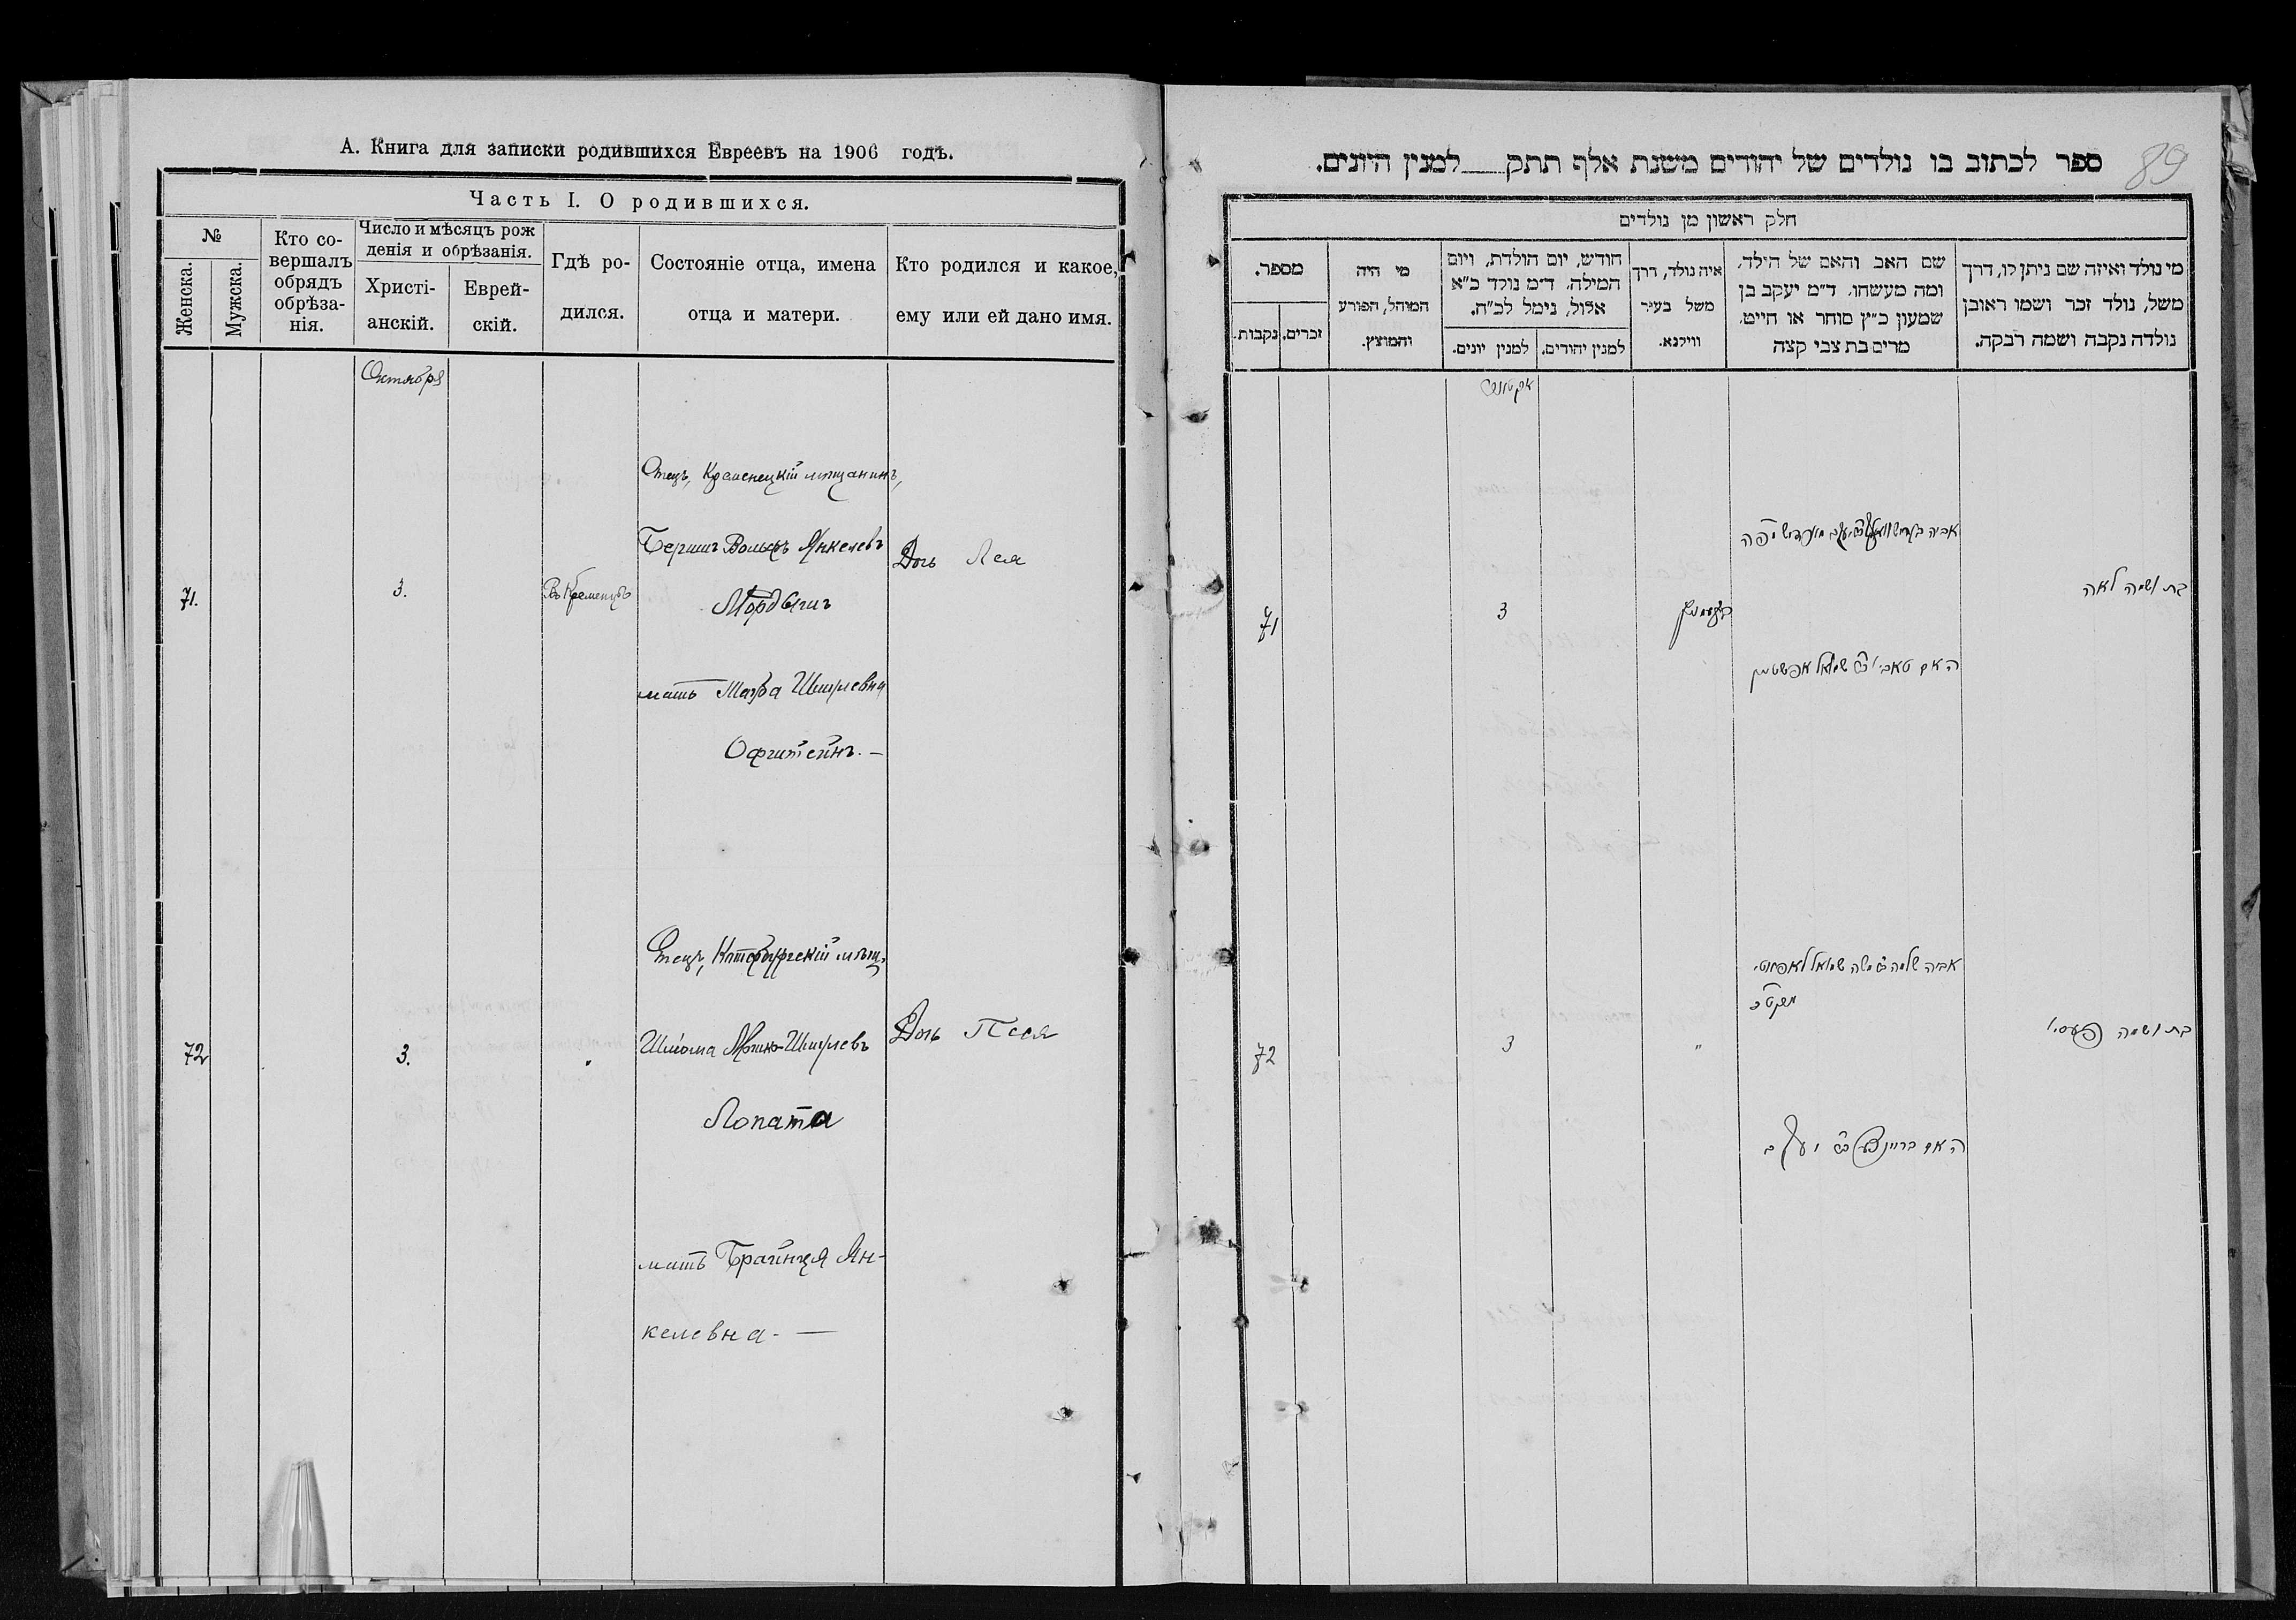 А. Книга для записки родившихся Евреевъ на 1906 годъ.
Часть I. О родившихся.
№
Женска.
Мужска.
Кто со-
вершалъ
обрядъ
обрѣза-
нія.
Число и мѣсяцъ рож
денія и обрѣзанія.
Христі-
анскій.
Еврей-
скій.
Гдѣ ро-
дился.
Состояніе отца, имена
отца и матери.
Кто родился и какое,
ему или ей дано имя.
Октября
71.
3.
Въ Кременцѣ
Отецъ, Кременецкій мѣщанинъ,
Вольфъ Янкелевъ
мать Шмулевна
Дочь Лея
72
3.
"
Отецъ,
Шлома Мошко-Шмулевъ
Лопата
мать Брайнця Ян-
келевна. —
Дочь Песя
89
ספר לכתוב בו נולדים של יהודים משנת אלף תתק למנין היונים.
חלק ראשון מן נולדים
מספר.
זכרים.
נקבות.
מי היה
המוהל, הפורע
והמוצץ.
חודש, יום הולדת, ויום
המילה. ד״מ נולד כ״א
אלול, נימל לכ״ח.
למנין יונים.
למנין יהודים.
איה נולד, דרך
משל בעיר
ווילנא.
שם האב והאם של הילד,
ומה מעשהו. ד״מ יעקב בן
שמעון כ״ץ סוחר או חייט.
מרים בת צבי קצה
מי נולד ואיזה שם ניתן לו, דרך
משל, נולד זכר ושמו ראובן
נולדה נקבה ושמה רבקה.
71
3
בת ושמה לאה
72
3
"
בת ושמה פעסי